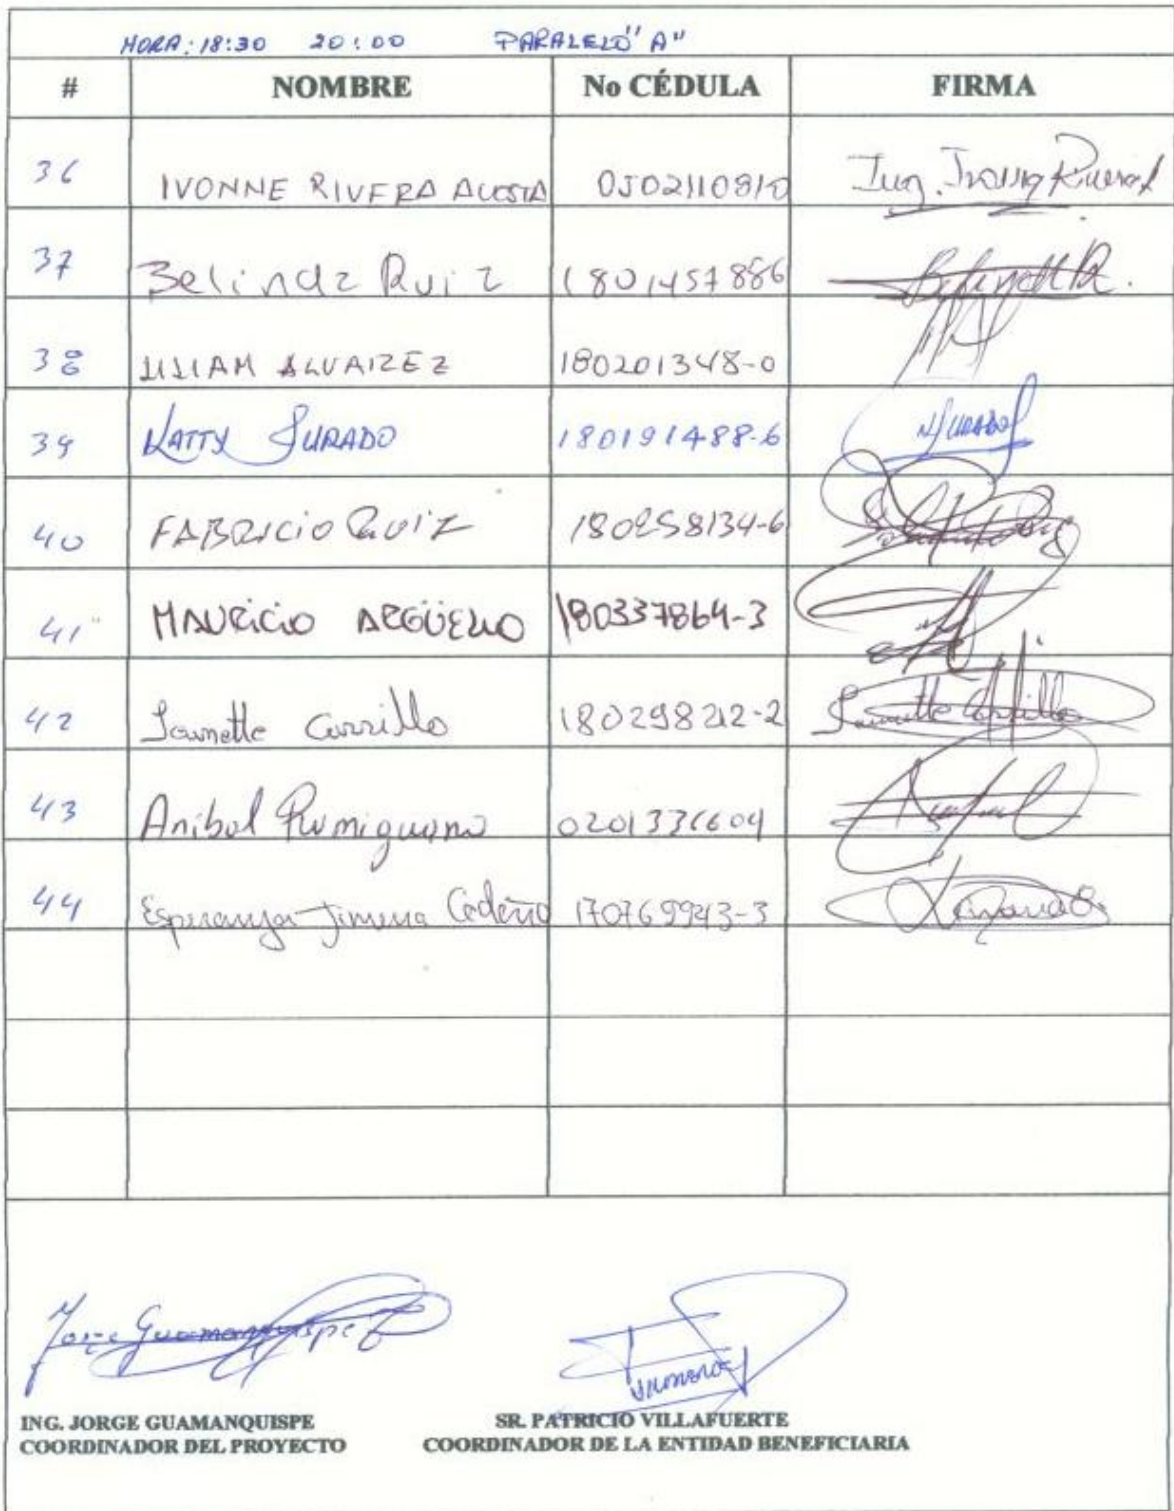 HORA: 18:30 20:00 PARALELO "A"
# NOMBRE No CÉDULA FIRMA
36 IVONNE RIVERA ACOSTA 0502110810 Ing. Ivonne Rivera
37 Belinda Ruiz 1801457886
38 LILIAM ALVAREZ 180201348-0
39 KATTY JURADO 180191488-6 NJURADO
40 FABRICIO RUIZ 180258134-6
41 MAURICIO ARGÜELLO 180337864-3
42 Jannette Carrillo 180298212-2 Jannette Carrillo
43 Anibal Rumiguano 0201336604
44 Esperanza Jimena Cedeño 170769943-3
Jorge Guamanquispe
ING. JORGE GUAMANQUISPE SR. PATRICIO VILLAFUERTE
COORDINADOR DEL PROYECTO COORDINADOR DE LA ENTIDAD BENEFICIARIA